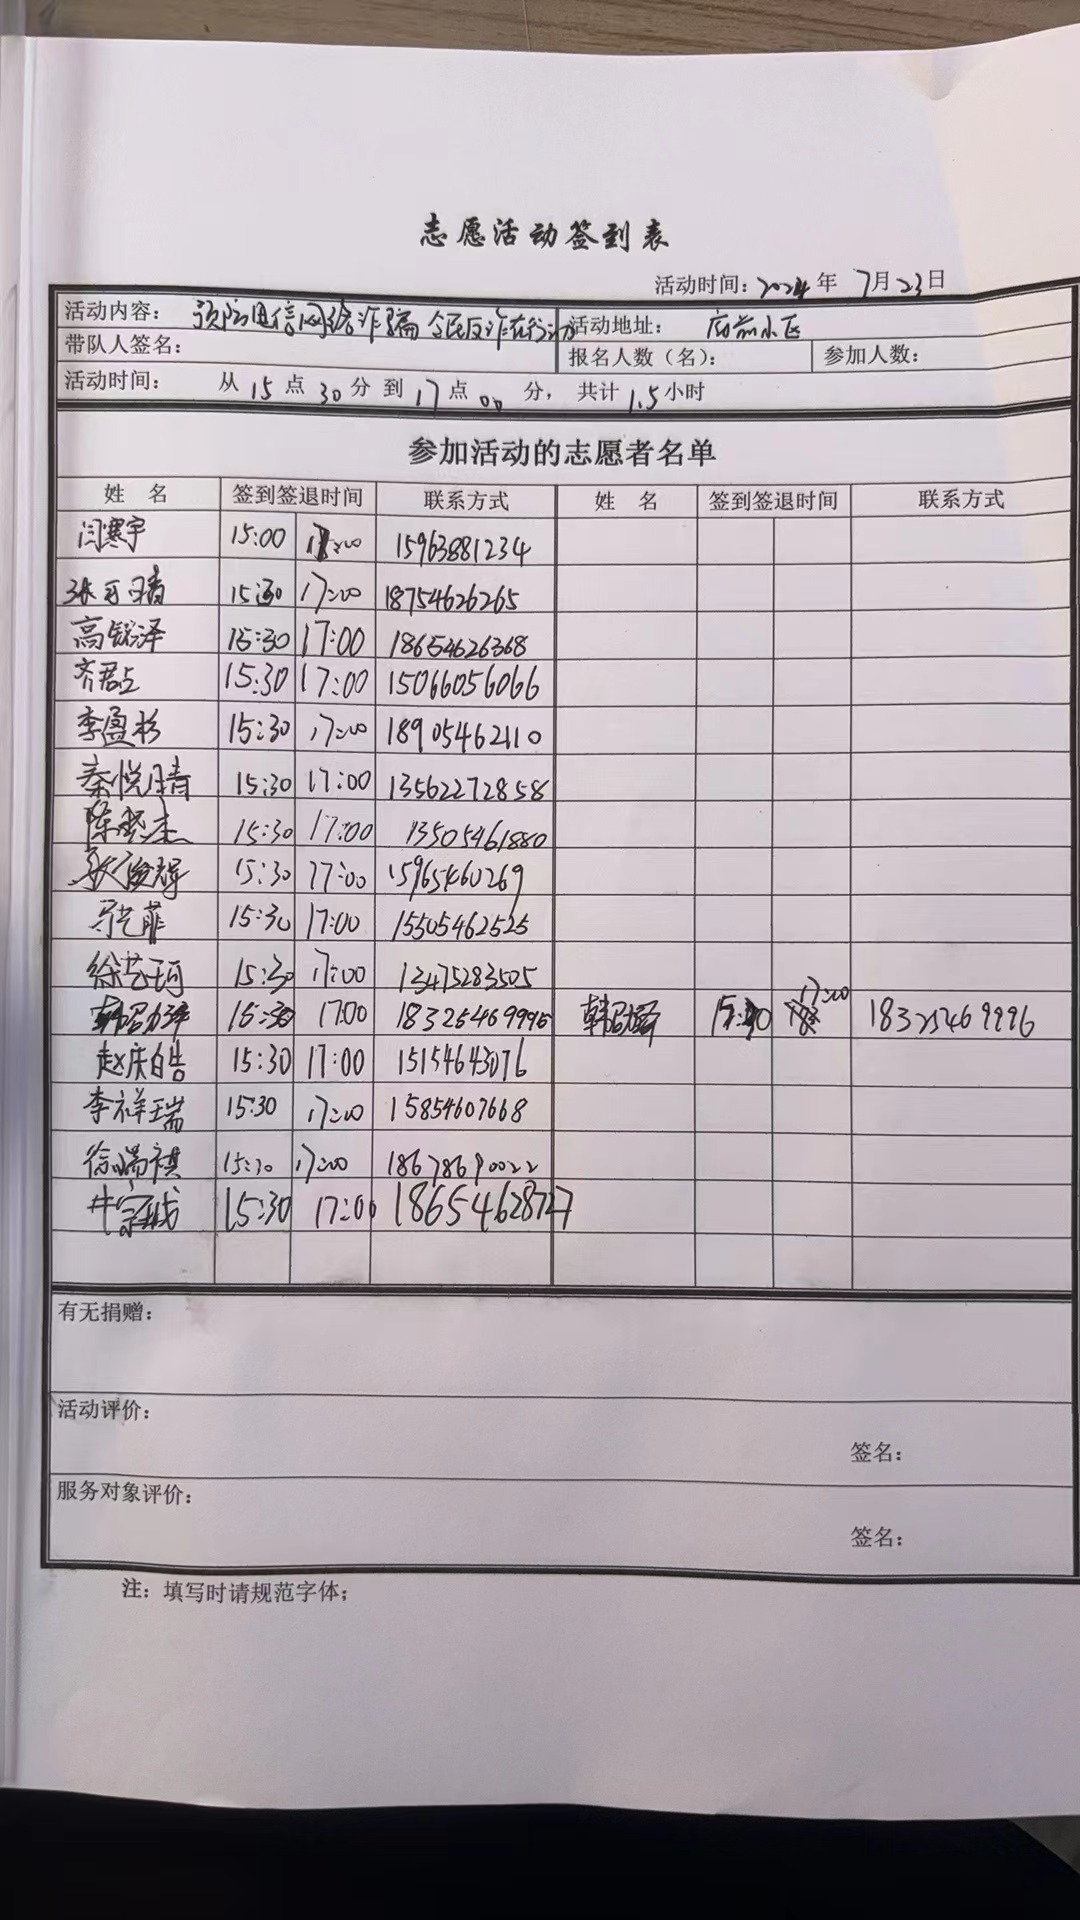 志愿活动签到表
活动时间：2024年 7月23日
活动内容： 预防电信网络诈骗 全民反诈在行动 活动地址： 府前小区
带队人签名： 报名人数（名）： 参加人数：
活动时间： 从15点30分到17点00分，共计1.5小时
参加活动的志愿者名单
姓 名 签到签退时间 联系方式 姓 名 签到签退时间 联系方式
闫寒宇 15:00 17:00 15963881234
张可晴 15:30 17:00 18754626265
高锐泽 15:30 17:00 18654626368
齐君 15:30 17:00 15066056066
李盈杉 15:30 17:00 18905462110
秦悦晴 15:30 17:00 13562272858
陈杰 15:30 17:00 13505461880
俊辉 15:30 17:00 15965460269
马艺菲 15:30 17:00 15305462525
徐艺珂 15:30 17:00 13475283505
韩 15:30 17:00 18325469996 韩 15:30 17:00 18325469996
赵庆皓 15:30 17:00 15154643076
李祥瑞 15:30 17:00 15854607668
徐瑞祺 15:30 17:00 18678690022
井宗 15:30 17:00 18654628727
有无捐赠：
活动评价：
签名：
服务对象评价：
签名：
注：填写时请规范字体；